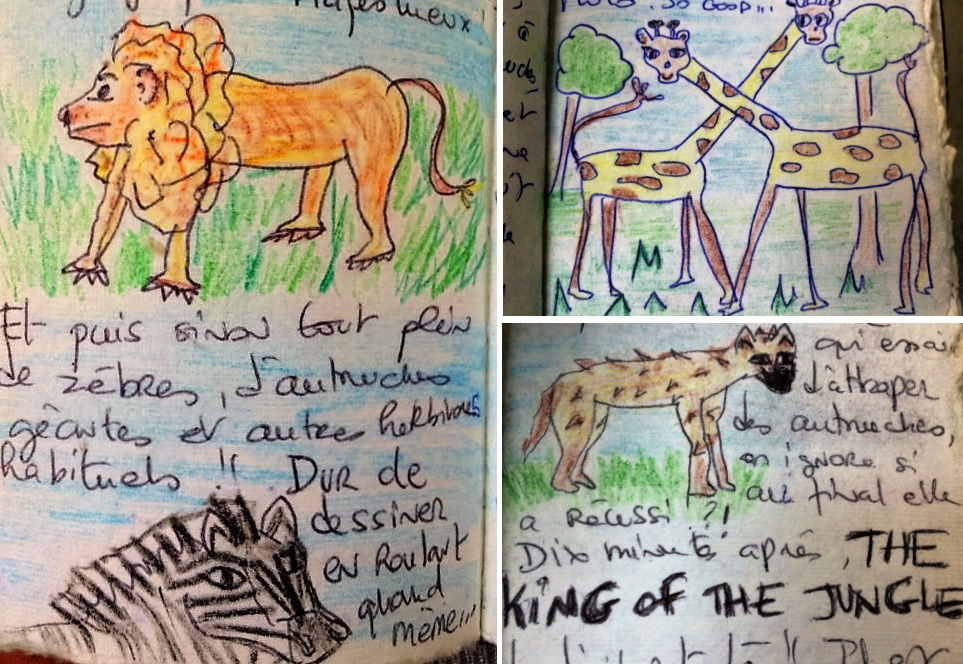 Et puis sinon tout plein
de zèbres, d'autruches
géantes et autres herbivores
habituels !! Dur de
dessiner
en roulant
quand
même...
so good...
qui essaie
d'attraper
des autruches,
on ignore si
au final elle
a réussi ?!
Dix minutes après, THE
KING OF THE JUNGLE